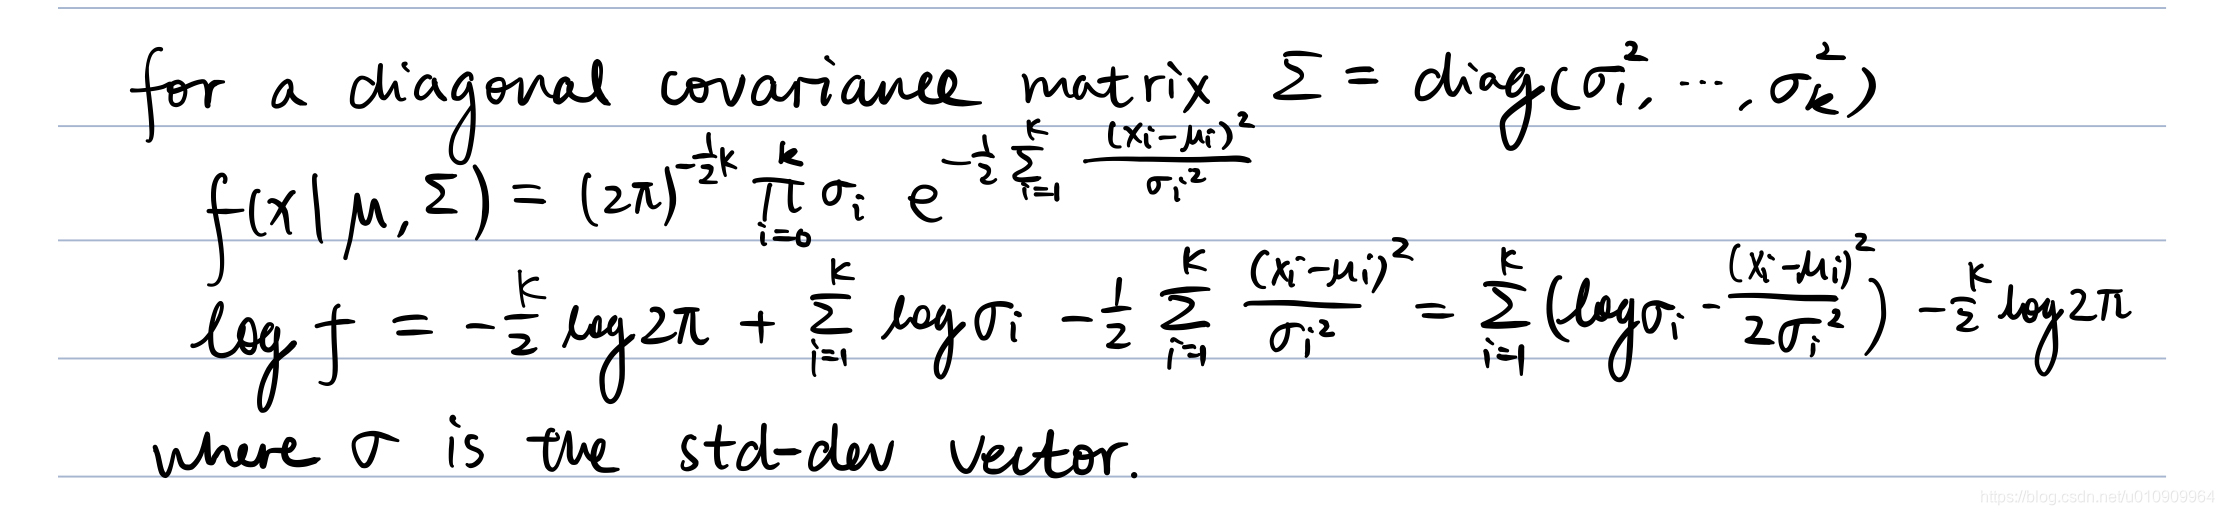 for a diagonal covariance matrix Σ = diag(σ₁², ⋯, σₖ²)
f(x|μ, Σ) = (2π)^{-½k} ∏_{i=0}^{k} σᵢ e^{-½ ∑_{i=1}^{k} (xᵢ-μᵢ)²/σᵢ²}
log f = -k/2 log 2π + ∑_{i=1}^{k} log σᵢ - ½ ∑_{i=1}^{k} (xᵢ-μᵢ)²/σᵢ² = ∑_{i=1}^{k} (log σᵢ - (xᵢ-μᵢ)²/2σᵢ²) - k/2 log 2π
where σ is the std-dev vector.
https://blog.csdn.net/u010909964